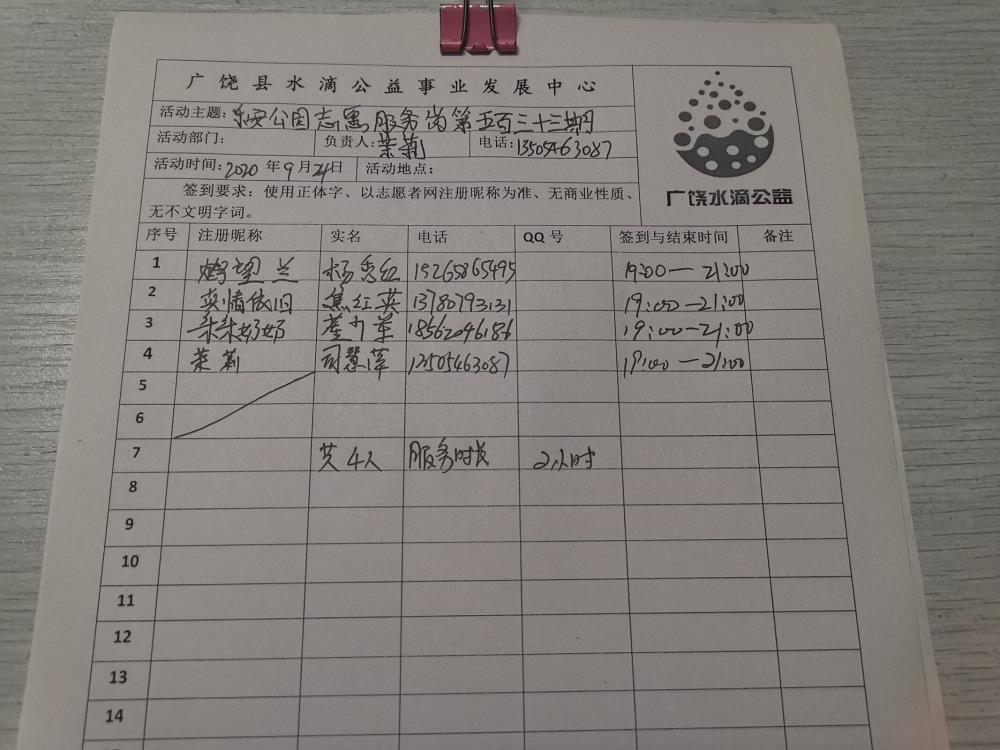 广饶县水滴公益事业发展中心
活动主题：乐安公园志愿服务岗第五百三十三期
活动部门： 负责人：茉莉 电话：13505463087
活动时间：2020年9月21日 活动地点：
签到要求：使用正体字、以志愿者网注册昵称为准、无商业性质、
无不文明字词。
广饶水滴公益
序号 注册昵称 实名 电话 QQ号 签到与结束时间 备注
1 鹤望兰 杨秀红 15265865495 19:00—21:00
2 真情依旧 焦红英 13780793131 19:00—21:00
3 朵朵奶奶 18562046186 19:00—21:00
4 茉莉 13505463087 19:00—21:00
5
6
7 共4人 服务时长 2小时
8
9
10
11
12
13
14